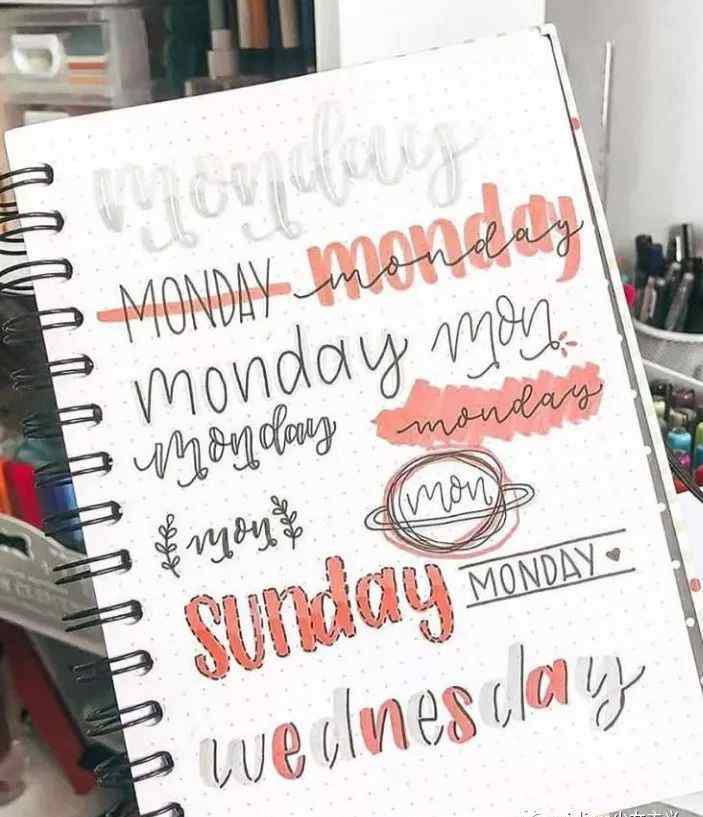 monday
MONDAY monday monday
monday mon
monday monday
mon mon
sunday MONDAY
wednesday